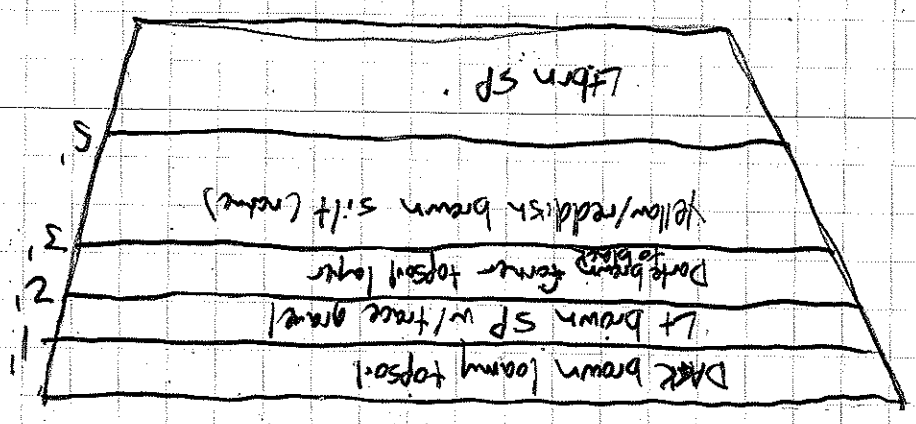 DARK brown loamy topsoil
1'
Lt brown SP w/trace gravel
2'
Dark brown to black former topsoil layer
3'
Yellow/reddish brown silt (native)
5'
Lt brn SP